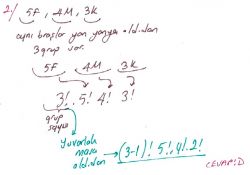 2/ 5F, 4M, 3K
aynı branşlar yan yanya old.dan
3 grup var.
5F 4M 3K
3! . 5! 4! 3!
grup
sayısı
Yuvarlak
masa
old.dan
(3-1)! 5! 4! 2!
CEVAP: D